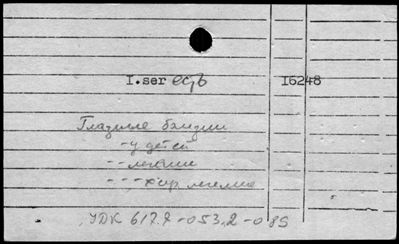 I.ser есть I6248
Глазные болезни
- у детей
- - - лечение
- - , - хир лечение
УДК 617.7-053.2-085